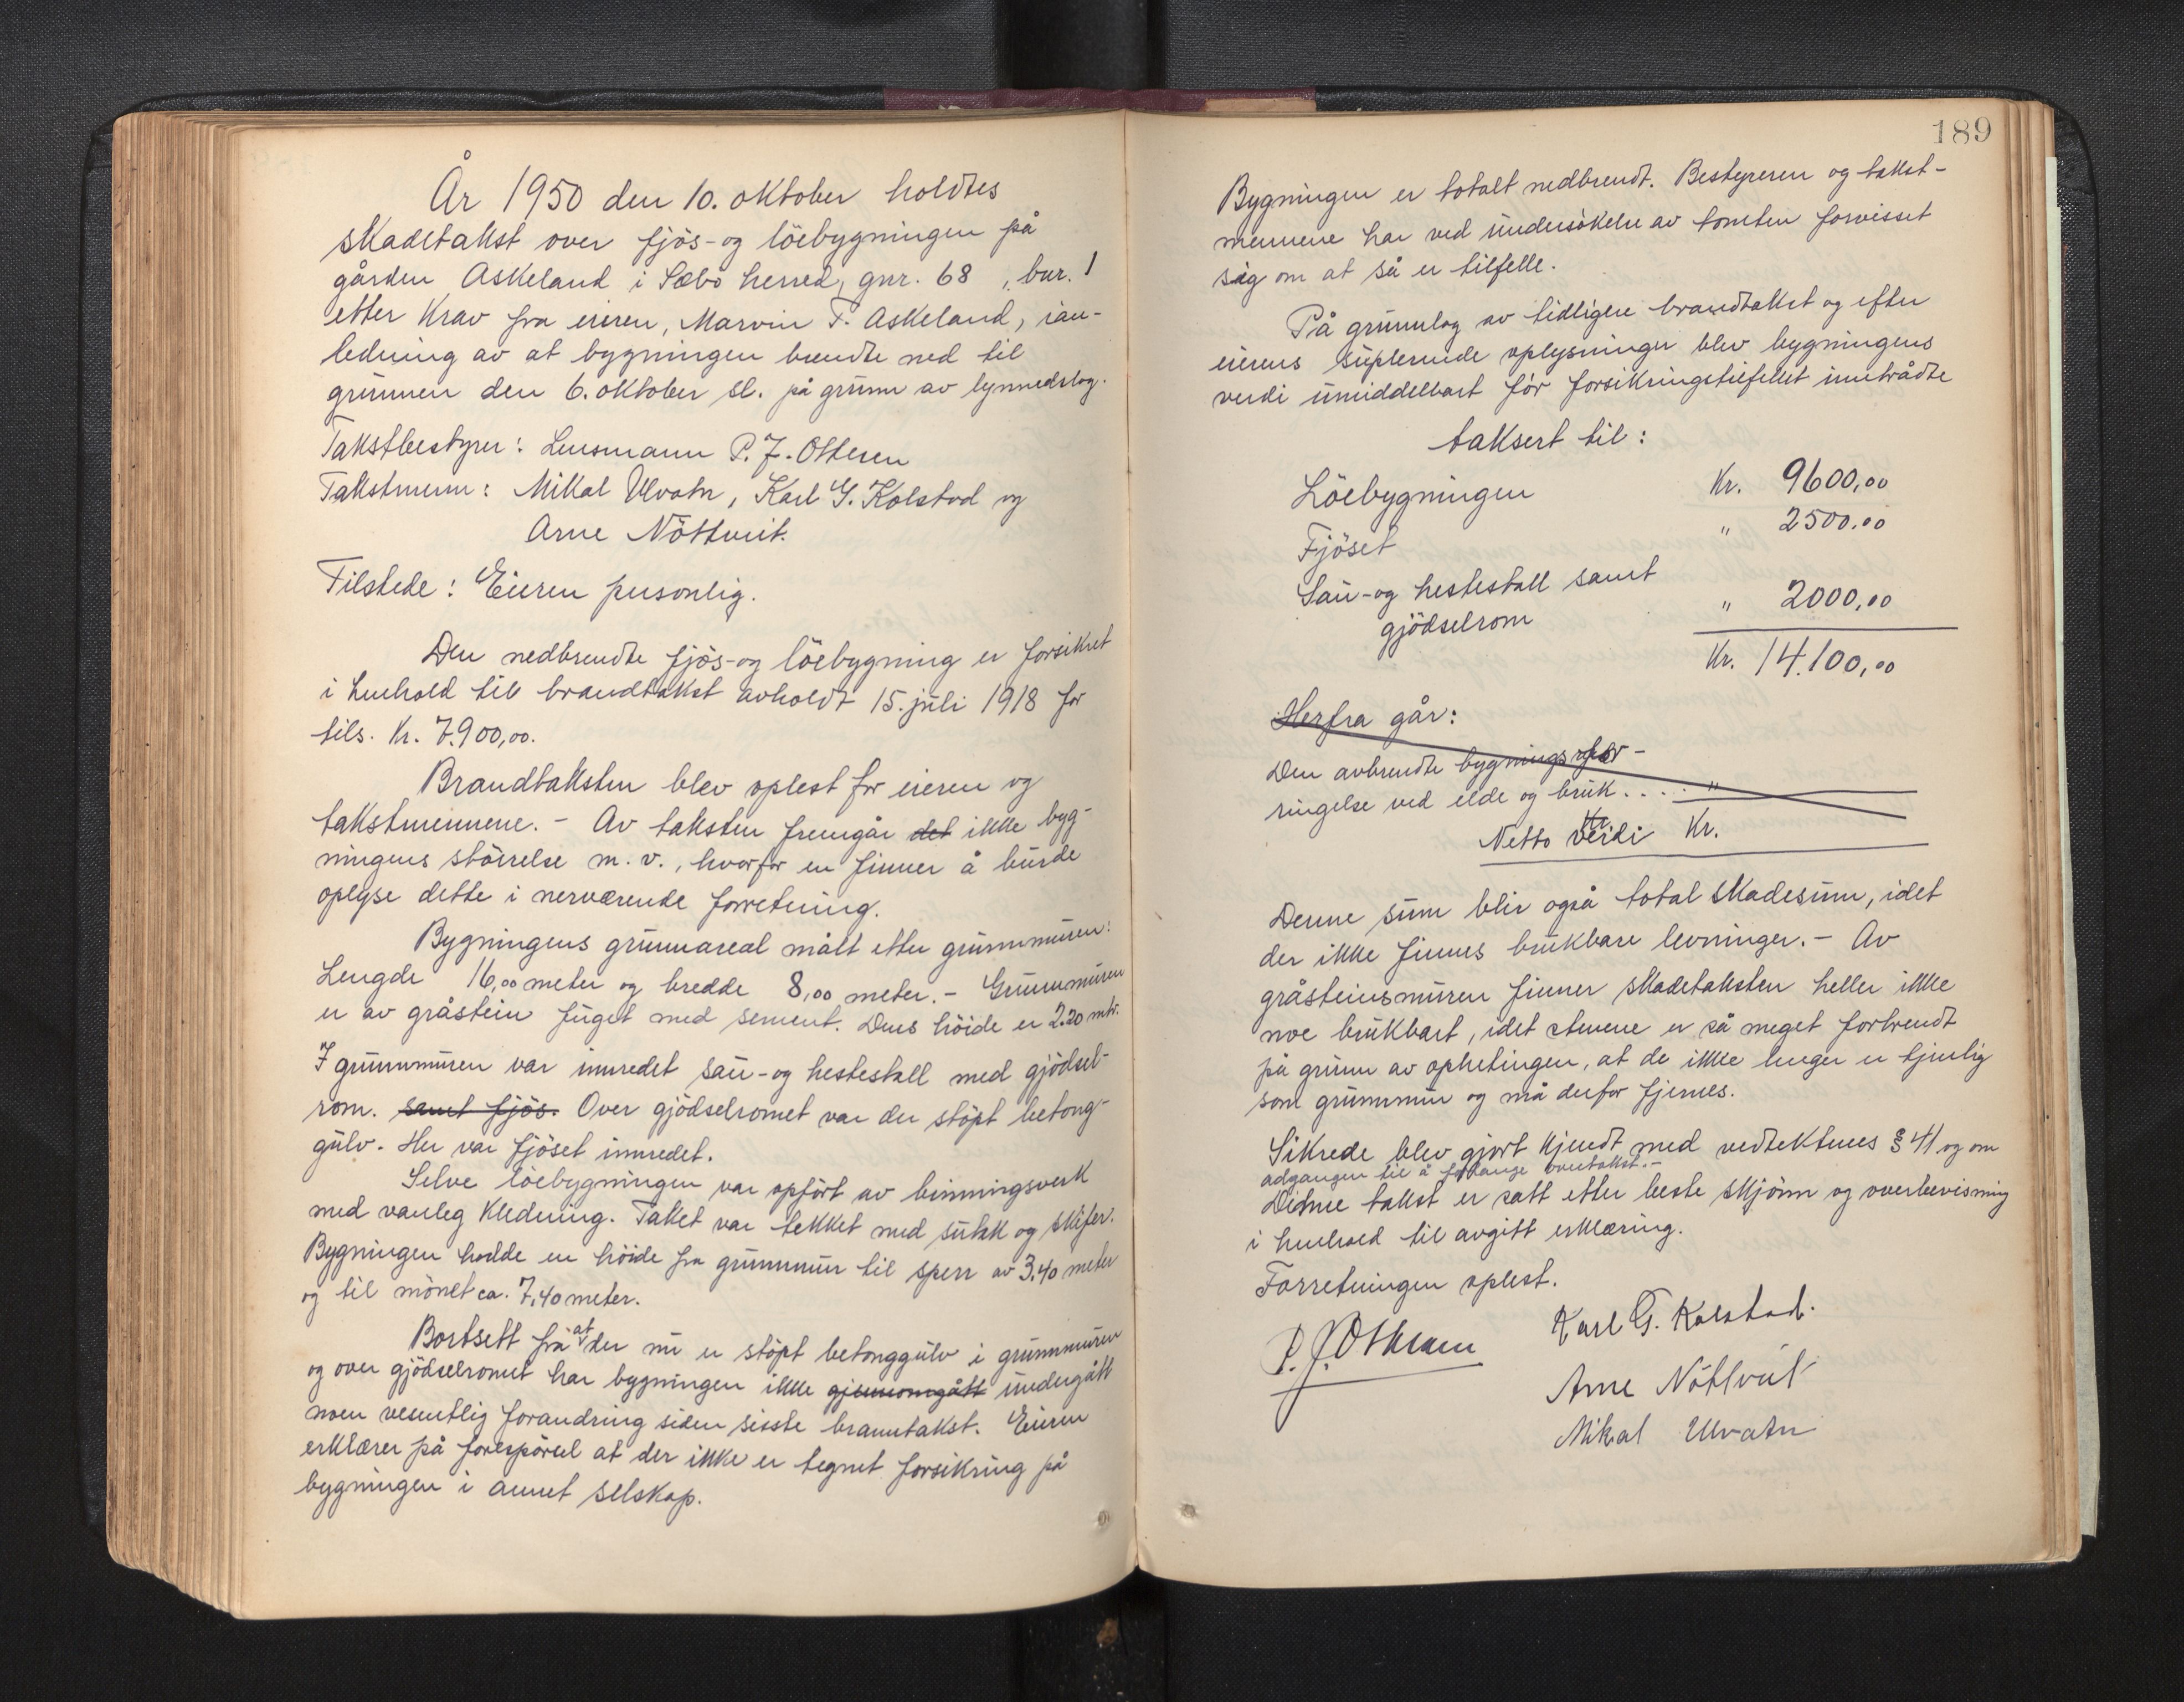 År 1950 den 10. oktober holdtes
skadetakst over fjös- og löebygningen på
gården Askeland i Sæbö herred, gnr. 68, bnr. 1
etter krav fra eieren, Marvin T. Askeland, i an-
ledning av at bygningen brendte ned til
grunnen den 6. oktober sl. på grunn av lynnedslag.
Takstbestyrer: Lensmann P. J. Ottesen
Takstmenn: Mikal Ulvatn, Karl G. Kolstad og
Arne Nöttveit.
Tilstede: Eieren personlig.
Den nedbrendte fjös- og löebygning er forsikret
i henhold til brandtakst avholdt 15. juli 1918 for
tils. kr. 7.900,00.
Brandtaksten blev oplest for eieren og
takstmennene. - Av taksten fremgår det ikke byg-
ningens störrelse m. v., hvorfor en finner å burde
oplyse dette i nerværende forretning.
Bygningens grunnareal målt etter grunnmuren:
Lengde 16,00 meter og bredde 8,00 meter. - Grunnmuren
er av gråstein fuget med sement. Dens höide er 2.20 mtr.
I grunnmuren var innredet sau- og hestestall med gjödsel-
rom. samt fjös. Over gjödselromet var der stöpt betong-
gulv. Her var fjöset innredet.
Selve löebygningen var opfört av binningsverk
med vanleg kledning. Taket var tekket med sutak og skifer.
Bygningen hadde en höide fra grunnmur til sperr av 3,40 meter
og til mönet ca. 7,40 meter.
Bortsett fra at der nu er stöpt betonggulv i grunnmuren
og over gjödselromet har bygningen ikke gjennomgått undergått
noen vesentlig forandring siden sisste branntakst. Eieren
erklærer på forespörsel at der ikke er tegnet forsikring på
bygningen i annet selskap.
189
Bygningen er totalt nedbrendt. Bestyreren og takst-
mennene har ved undersökelse av tomten forvisset
sig om at så er tilfelle.
På grunnlag av tidligere brandtakst og efter
eierens suplerende oplysninger blev bygningens
verdi umiddelbart för forsikringstilfellet inntrådte
taksert til:
Löebygningen Kr. 9600,00
Fjöset " 2500.00
Sau- og hestestall samt
gjödselrom " 2000,00
Kr. 14.100,00
Herfra går:
Den avbrendte bygnings for-
ringelse ved elde og bruk . . . . "
Netto verdi Kr.
Denne sum blir også total skadesum, idet
der ikke finnes brukbare levninger. - Av
gråsteinsmuren finner skadetaksten heller ikke
noe brukbart, idet stenene er så meget forbrendt
på grunn av ophetingen, at de ikke lenger er tjenlig
som grunnmur og må derfor fjernes.
Sikrede blev gjort kjendt med vedtektenes § 41 og om
adgangen til å forlange overtakst. -
Denne takst er satt etter beste skjönn og overbevisning
i henhold til avgitt erklæring.
Forretningen oplest.
P. J. Ottesen Karl G. Kolstad.
Arne Nöttveit
Mikal Ulvatn